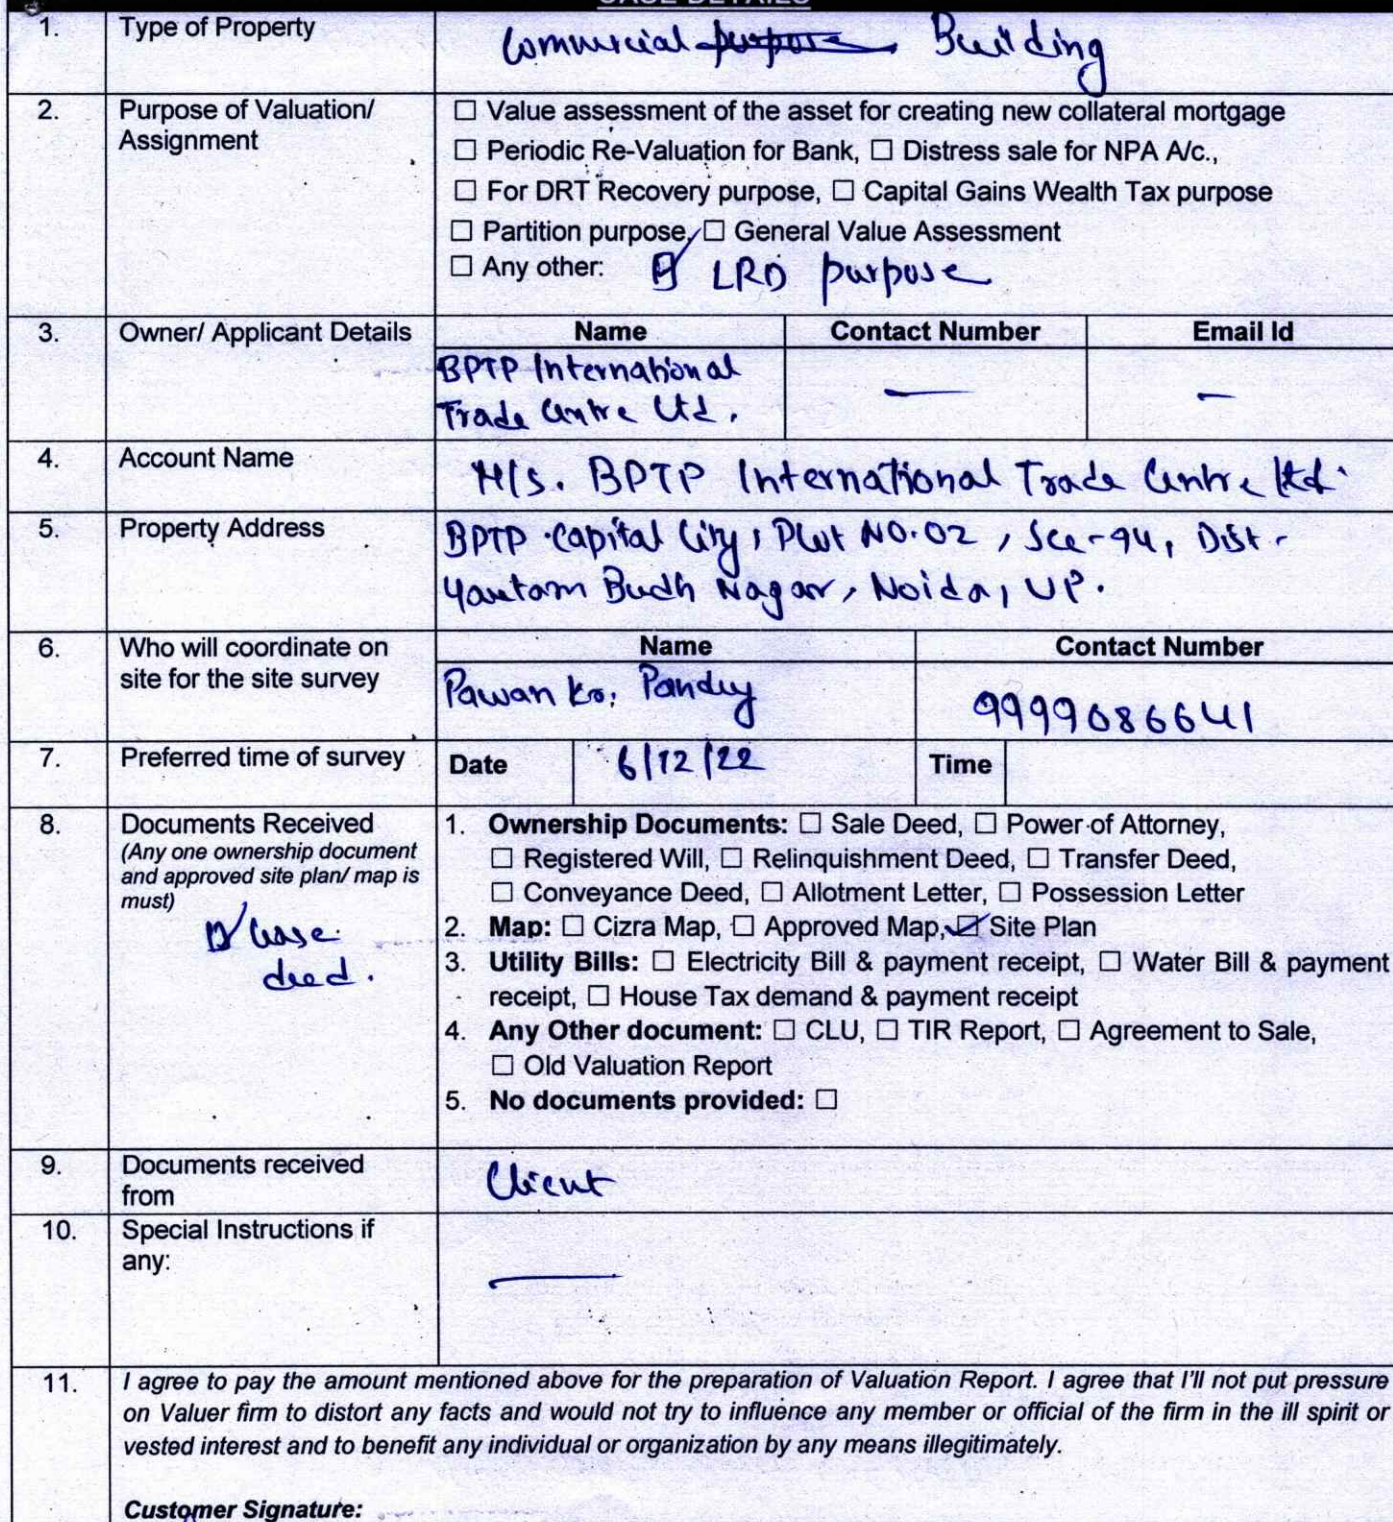 CASE DETAILS
1. Type of Property Commercial purpose Building
2. Purpose of Valuation/ Assignment
☐ Value assessment of the asset for creating new collateral mortgage
☐ Periodic Re-Valuation for Bank, ☐ Distress sale for NPA A/c.,
☐ For DRT Recovery purpose, ☐ Capital Gains Wealth Tax purpose
☐ Partition purpose, ☐ General Value Assessment
☐ Any other: ☑ LRD purpose
3. Owner/ Applicant Details Name Contact Number Email Id
BPTP International
Trade Centre Ltd. — —
4. Account Name M/s. BPTP International Trade Centre Ltd.
5. Property Address BPTP Capital City, Plot NO.02, Sec-94, Dist-
Gautam Budh Nagar, Noida, UP.
6. Who will coordinate on site for the site survey
Name Contact Number
Pawan Kr. Pandey 9999086641
7. Preferred time of survey Date 6/12/22 Time
8. Documents Received
(Any one ownership document
and approved site plan/ map is
must)
☑ Lease
deed.
1. Ownership Documents: ☐ Sale Deed, ☐ Power of Attorney,
☐ Registered Will, ☐ Relinquishment Deed, ☐ Transfer Deed,
☐ Conveyance Deed, ☐ Allotment Letter, ☐ Possession Letter
2. Map: ☐ Cizra Map, ☐ Approved Map, ☑ Site Plan
3. Utility Bills: ☐ Electricity Bill & payment receipt, ☐ Water Bill & payment
receipt, ☐ House Tax demand & payment receipt
4. Any Other document: ☐ CLU, ☐ TIR Report, ☐ Agreement to Sale,
☐ Old Valuation Report
5. No documents provided: ☐
9. Documents received
from Client
10. Special Instructions if
any: —
11. I agree to pay the amount mentioned above for the preparation of Valuation Report. I agree that I'll not put pressure
on Valuer firm to distort any facts and would not try to influence any member or official of the firm in the ill spirit or
vested interest and to benefit any individual or organization by any means illegitimately.
Customer Signature: